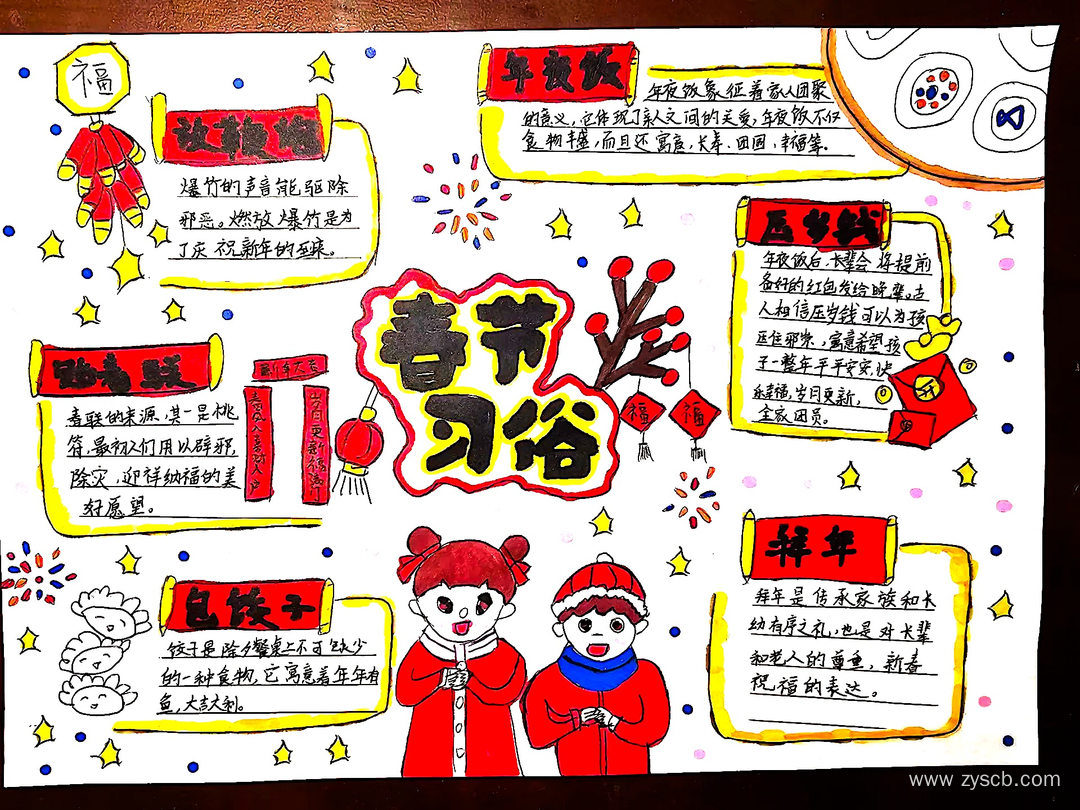 福
放鞭炮
爆竹的声音能驱除
邪恶。燃放爆竹是为
了庆祝新年的到来。
年夜饭
年夜饭象征着家人团聚
的意义，它体现了亲人之间的关爱，年夜饭不仅
食物丰盛，而且还寓意，长寿、团圆、幸福等。
压岁钱
年夜饭后长辈会将提前
备好的红包发给晚辈。古
人相信压岁钱可以为孩
压住邪祟，寓意希望孩
子一整年平平安安，快
乐幸福，岁月更新，
全家团员。
春节
习俗
福
福
贴春联
春联的来源，其一是桃
符，最初人们用以辟邪，
除灾，迎祥纳福的美
好愿望。
新年大吉
岁月更新福满门
包饺子
饺子是除夕餐桌上不可缺少
的一种食物，它寓意着年年有
鱼，大吉大利。
拜年
拜年是传承家族和长
幼有序之礼，也是对长辈
和老人的尊重，新春
祝福的表达。
www.zyscb.com